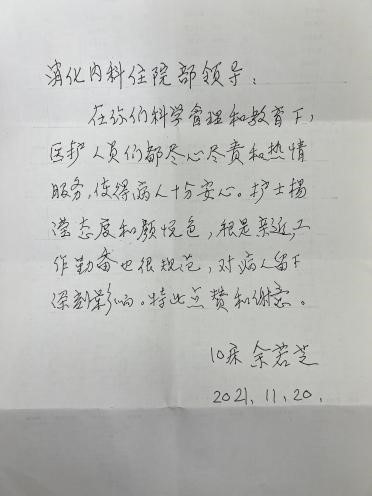 消化内科住院部领导：
在你们科学管理和教育下，
医护人员们都尽心尽责和热情
服务，使得病人十分安心。护士杨
滢态度和颜悦色，很是亲近，工
作勤奋也很规范，对病人留下
深刻影响。特此点赞和谢意。
10床 余若芝
2021.11.20.